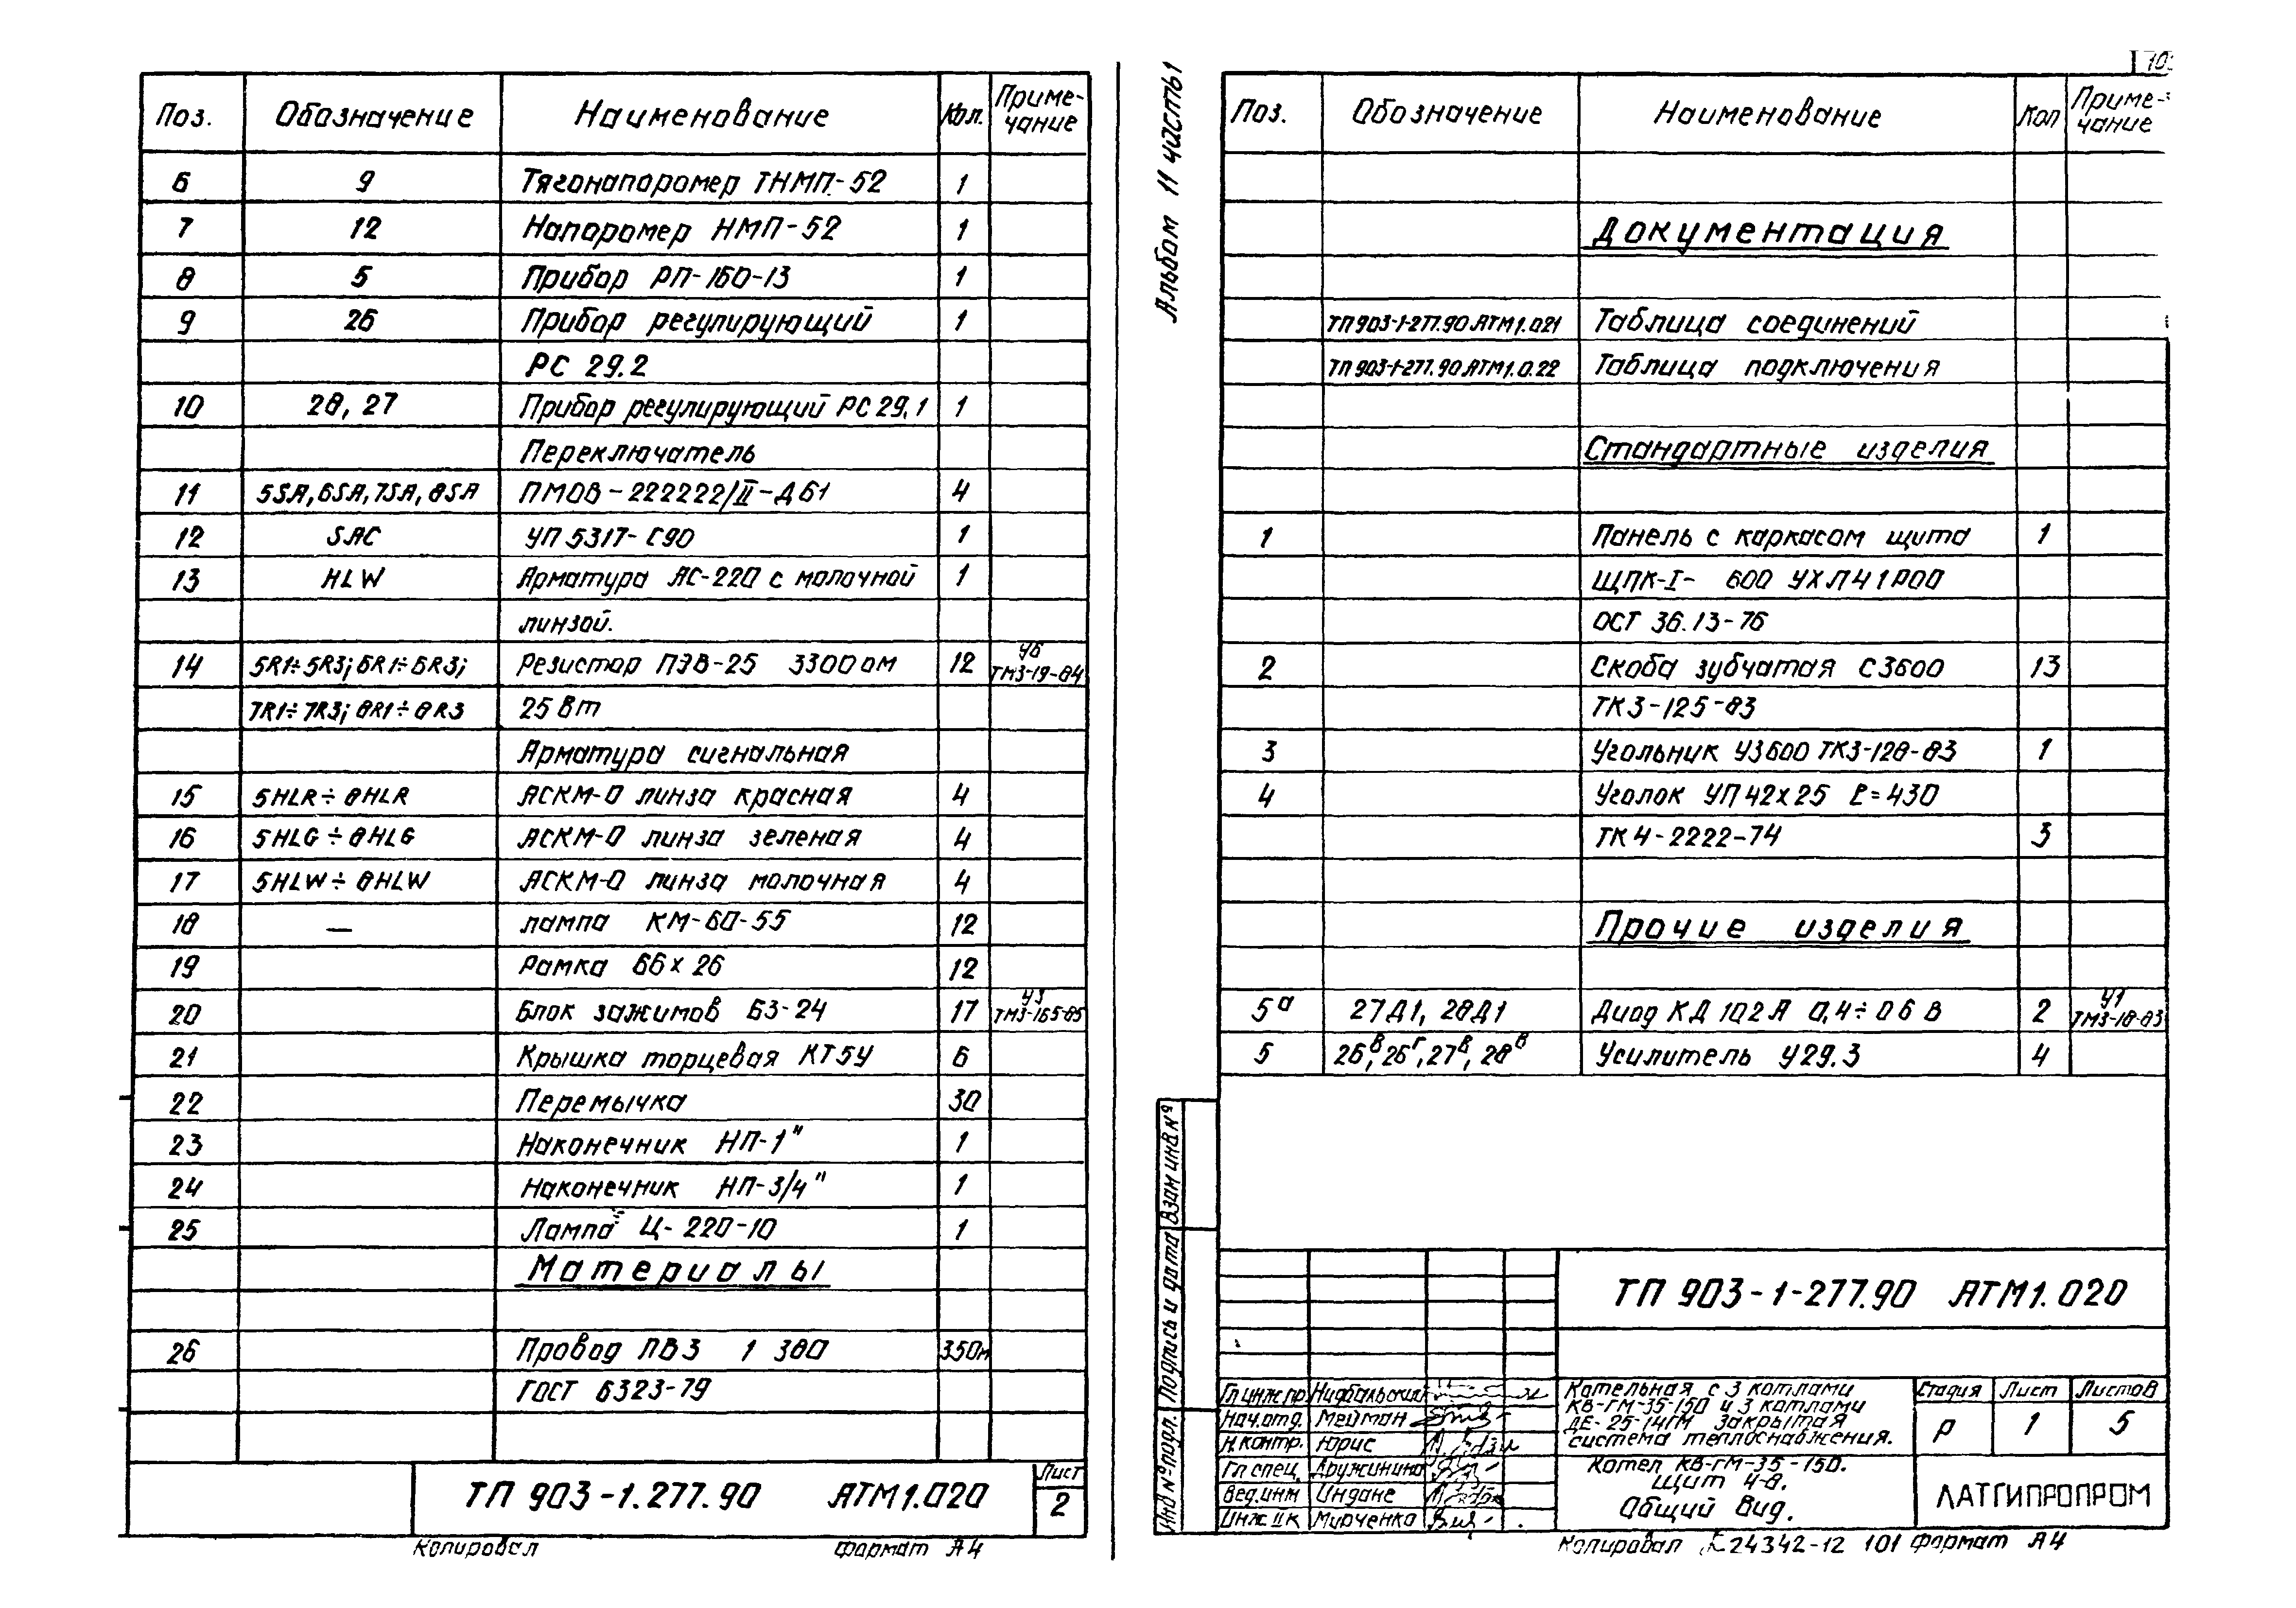 Поз. Обозначение Наименование Кол. Приме-
чание
6 9 Тягонапоромер ТНМП-52 1
7 12 Напоромер НМП-52 1
8 5 Прибор РП-160-13 1
9 26 Прибор регулирующий 1
РС 29.2
10 28, 27 Прибор регулирующий РС 29.1 1
Переключатель
11 5SA, 6SA, 7SA, 8SA ПМОВ-222222/II-Д61 4
12 SAC УП 5317-С90 1
13 HLW Арматура АС-220 с молочной 1
линзой.
14 5R1÷5R3; 6R1÷6R3; Резистор ПЭВ-25 3300 ом 12 У6
ТМ3-19-84
7R1÷7R3; 8R1÷8R3 25 Вт
Арматура сигнальная
15 5HLR÷8HLR АСКМ-О линза красная 4
16 5HLG÷8HLG АСКМ-О линза зеленая 4
17 5HLW÷8HLW АСКМ-О линза молочная 4
18 — лампа КМ-60-55 12
19 Рамка 66х26 12
20 Блок зажимов БЗ-24 17 У3
ТМ3-165-85
21 Крышка торцевая КТ5У 6
22 Перемычка 30
23 Наконечник НП-1" 1
24 Наконечник НП-3/4" 1
25 Лампа Ц-220-10 1
Материалы
26 Провод ПВ3 1 380 350м
ГОСТ 6323-79
ТП 903-1.277.90 АТМ1.020
Лист
2
Копировал Формат А4
Альбом 11 часть 1
Поз. Обозначение Наименование Кол Приме-
чание
Документация
ТП 903-1-277.90 АТМ1.021 Таблица соединений
ТП 903-1-277.90 АТМ1.0.22 Таблица подключения
Стандартные изделия
1 Панель с каркасом щита 1
ЩПК-I- 600 УХЛ4 1Р00
ОСТ 36.13-76
2 Скоба зубчатая СЗ600 13
ТК3-125-83
3 Угольник УЗ600 ТК3-128-83 1
4 Уголок УП 42х25 ℓ=430
ТК4-2222-74 3
Прочие изделия
5а 27Д1, 28Д1 Диод КД 102А 0,4÷06 В 2 У1
ТМ3-18-83
5 26в, 26г, 27в, 28в Усилитель У29.3 4
Взам инв №
Подпись и дата
Инв № подл.
ТП 903-1-277.90 АТМ1.020
Гл инж пр Нидбальский
Нач. отд. Мейтан
Н. контр. Юрис
Гл спец. Дружинина
Вед. инж Индане
Инж II к Мирченко
Котельная с 3 котлами
КВ-ГМ-35-150 и 3 котлами
ДЕ-25-14ГМ Закрытая
система теплоснабжения.
Стадия Лист Листов
Р 1 5
Котел КВ-ГМ-35-150.
Щит 4-8.
Общий вид.
ЛАТГИПРОПРОМ
Копировал 24342-12 101 Формат А4